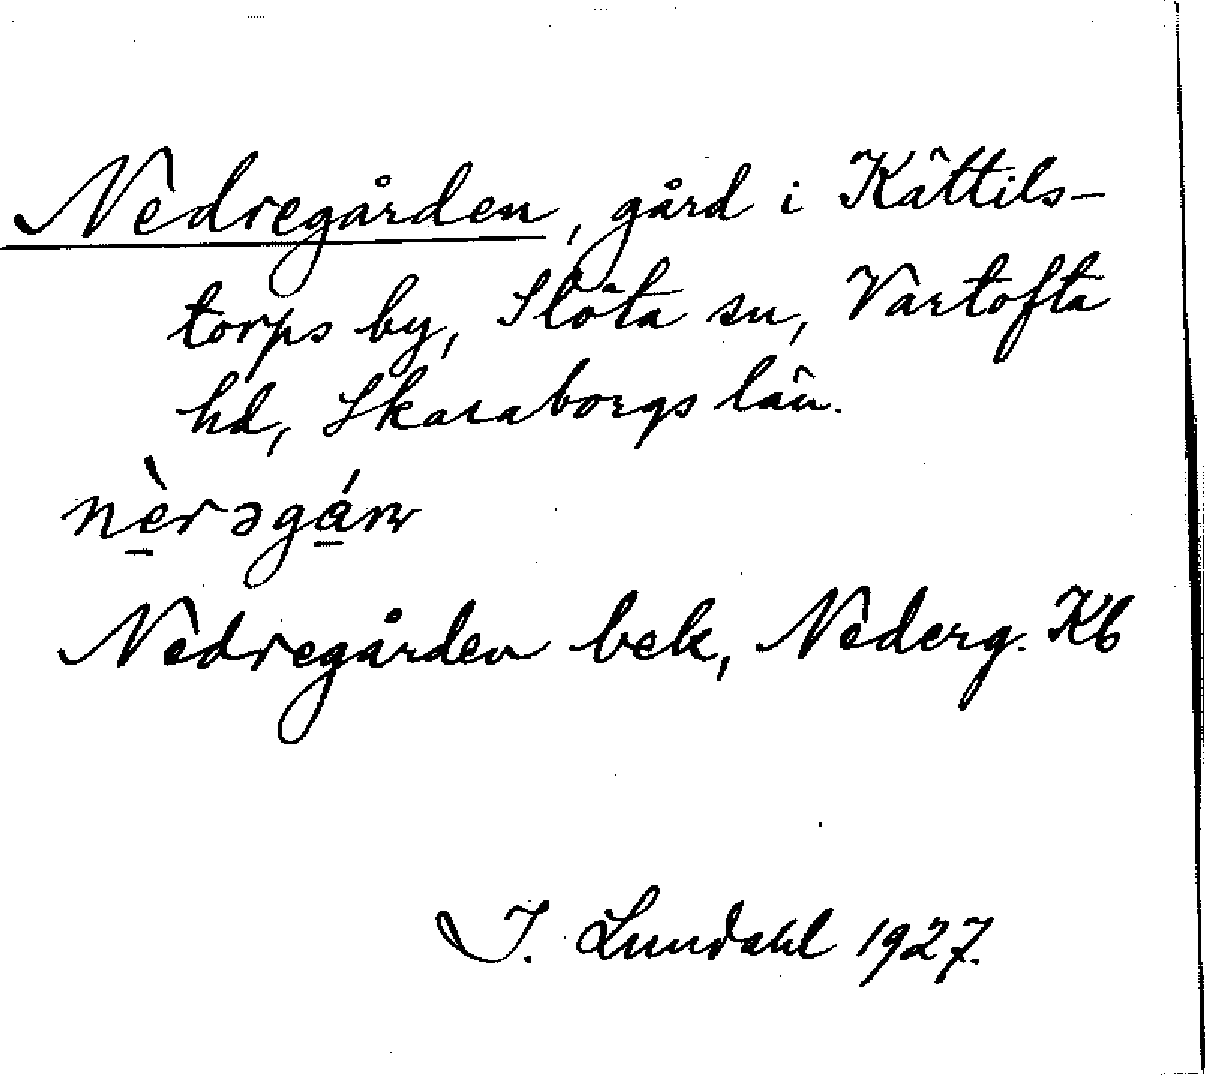 Nedregården, gård i Kättils-
torps by, Slöta sn, Vartofta
hd, Skaraborgs län.
nèrəgárn
Nedregården bek, Nederg. Kb
I. Lundahl 1927.